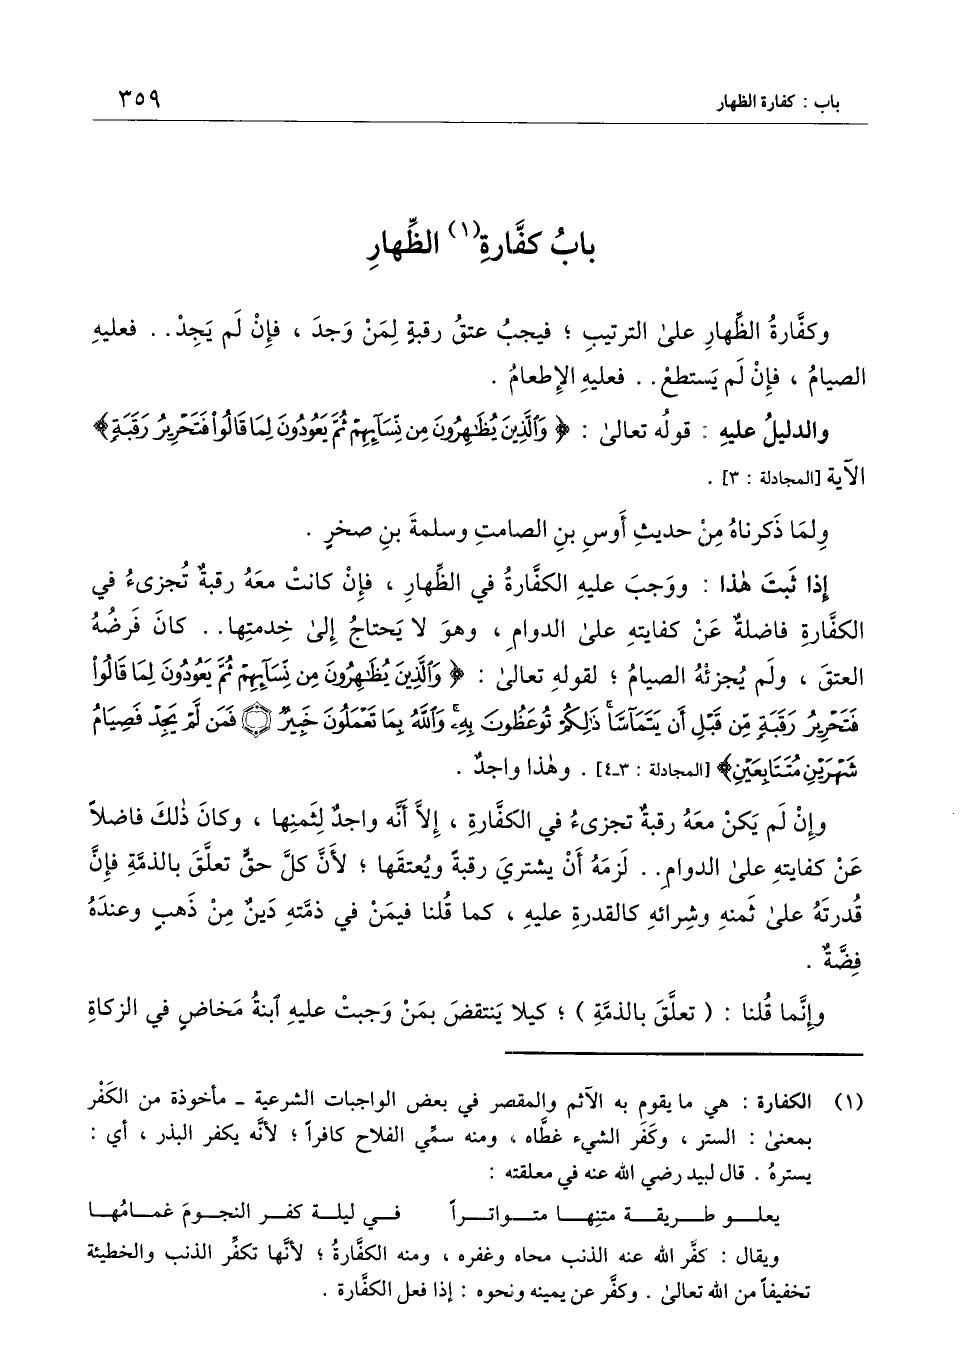 باب : كفارة الظهار ٣٥٩
بابُ كفَّارةِ(١) الظِّهارِ
وكفَّارةُ الظِّهارِ علىٰ الترتيبِ ؛ فيجبُ عتقُ رقبةٍ لِمَنْ وَجدَ ، فإِنْ لَم يَجِدْ . . فعليهِ
الصيامُ ، فإِنْ لَم يَستطعْ . . فعليهِ الإِطعامُ .
والدليلُ عليهِ : قولُه تعالىٰ : ﴿ وَٱلَّذِينَ يُظَٰهِرُونَ مِن نِّسَآئِهِمْ ثُمَّ يَعُودُونَ لِمَا قَالُوا۟ فَتَحْرِيرُ رَقَبَةٍ ﴾
الآية [المجادلة : ٣] .
ولِمَا ذَكرناهُ مِنْ حديثِ أَوسِ بنِ الصامتِ وسلمةَ بنِ صخرٍ .
إِذا ثَبتَ هٰذا : ووَجبَ عليهِ الكفَّارةُ في الظِّهارِ ، فإِنْ كانتْ معَهُ رقبةٌ تُجزىءُ في
الكفَّارةِ فاضلةٌ عَنْ كفايتهِ علىٰ الدوامِ ، وهوَ لا يَحتاجُ إِلىٰ خِدمتِها . . كانَ فَرضُهُ
العتقَ ، ولَم يُجزئْهُ الصيامُ ؛ لقولهِ تعالىٰ : ﴿ وَٱلَّذِينَ يُظَٰهِرُونَ مِن نِّسَآئِهِمْ ثُمَّ يَعُودُونَ لِمَا قَالُوا۟
فَتَحْرِيرُ رَقَبَةٍ مِّن قَبْلِ أَن يَتَمَآسَّا ۚ ذَٰلِكُمْ تُوعَظُونَ بِهِۦ ۚ وَٱللَّهُ بِمَا تَعْمَلُونَ خَبِيرٌ ۝ فَمَن لَّمْ يَجِدْ فَصِيَامُ
شَهْرَيْنِ مُتَتَابِعَيْنِ ﴾ [المجادلة : ٣-٤] . وهٰذا واجدٌ .
وإِنْ لَم يَكنْ معَهُ رقبةٌ تجزىءُ في الكفَّارةِ ، إِلاَّ أَنَّه واجدٌ لِثمنِها ، وكانَ ذٰلكَ فاضلاً
عَنْ كفايتهِ علىٰ الدوامِ . . لَزمَهُ أَنْ يشتريَ رقبةً ويُعتقَها ؛ لأَنَّ كلَّ حقٍّ تعلَّقَ بالذمَّةِ فإِنَّ
قُدرتَهُ علىٰ ثَمنهِ وشِرائهِ كالقدرةِ عليهِ ، كما قُلنا فيمَنْ في ذمَّتهِ دَينٌ مِنْ ذَهبٍ وعندَهُ
فِضَّةٌ .
وإِنَّما قُلنا : ( تعلَّقَ بالذمَّةِ ) ؛ كيلا يَنتقضَ بمَنْ وَجبتْ عليهِ ٱبنةُ مَخاضٍ في الزكاةِ
(١) الكفارة : هي ما يقوم به الآثم والمقصر في بعض الواجبات الشرعية ـ مأخوذة من الكَفْر
بمعنىٰ : الستر ، وكَفَر الشيء غطَّاه ، ومنه سمِّي الفلاح كافراً ؛ لأنَّه يكفر البذر ، أي :
يسترهُ . قال لبيد رضي الله عنه في معلقته :
يعلـو طـريقـة متنِهـا متـواتـراً في ليلـة كفـر النجـومَ غمـامُهـا
ويقال : كفَّر الله عنه الذنب محاه وغفره ، ومنه الكفَّارةُ ؛ لأنَّها تكفِّر الذنب والخطيئة
تخفيفاً من الله تعالىٰ . وكفَّر عن يمينه ونحوه : إذا فعل الكفَّارة .